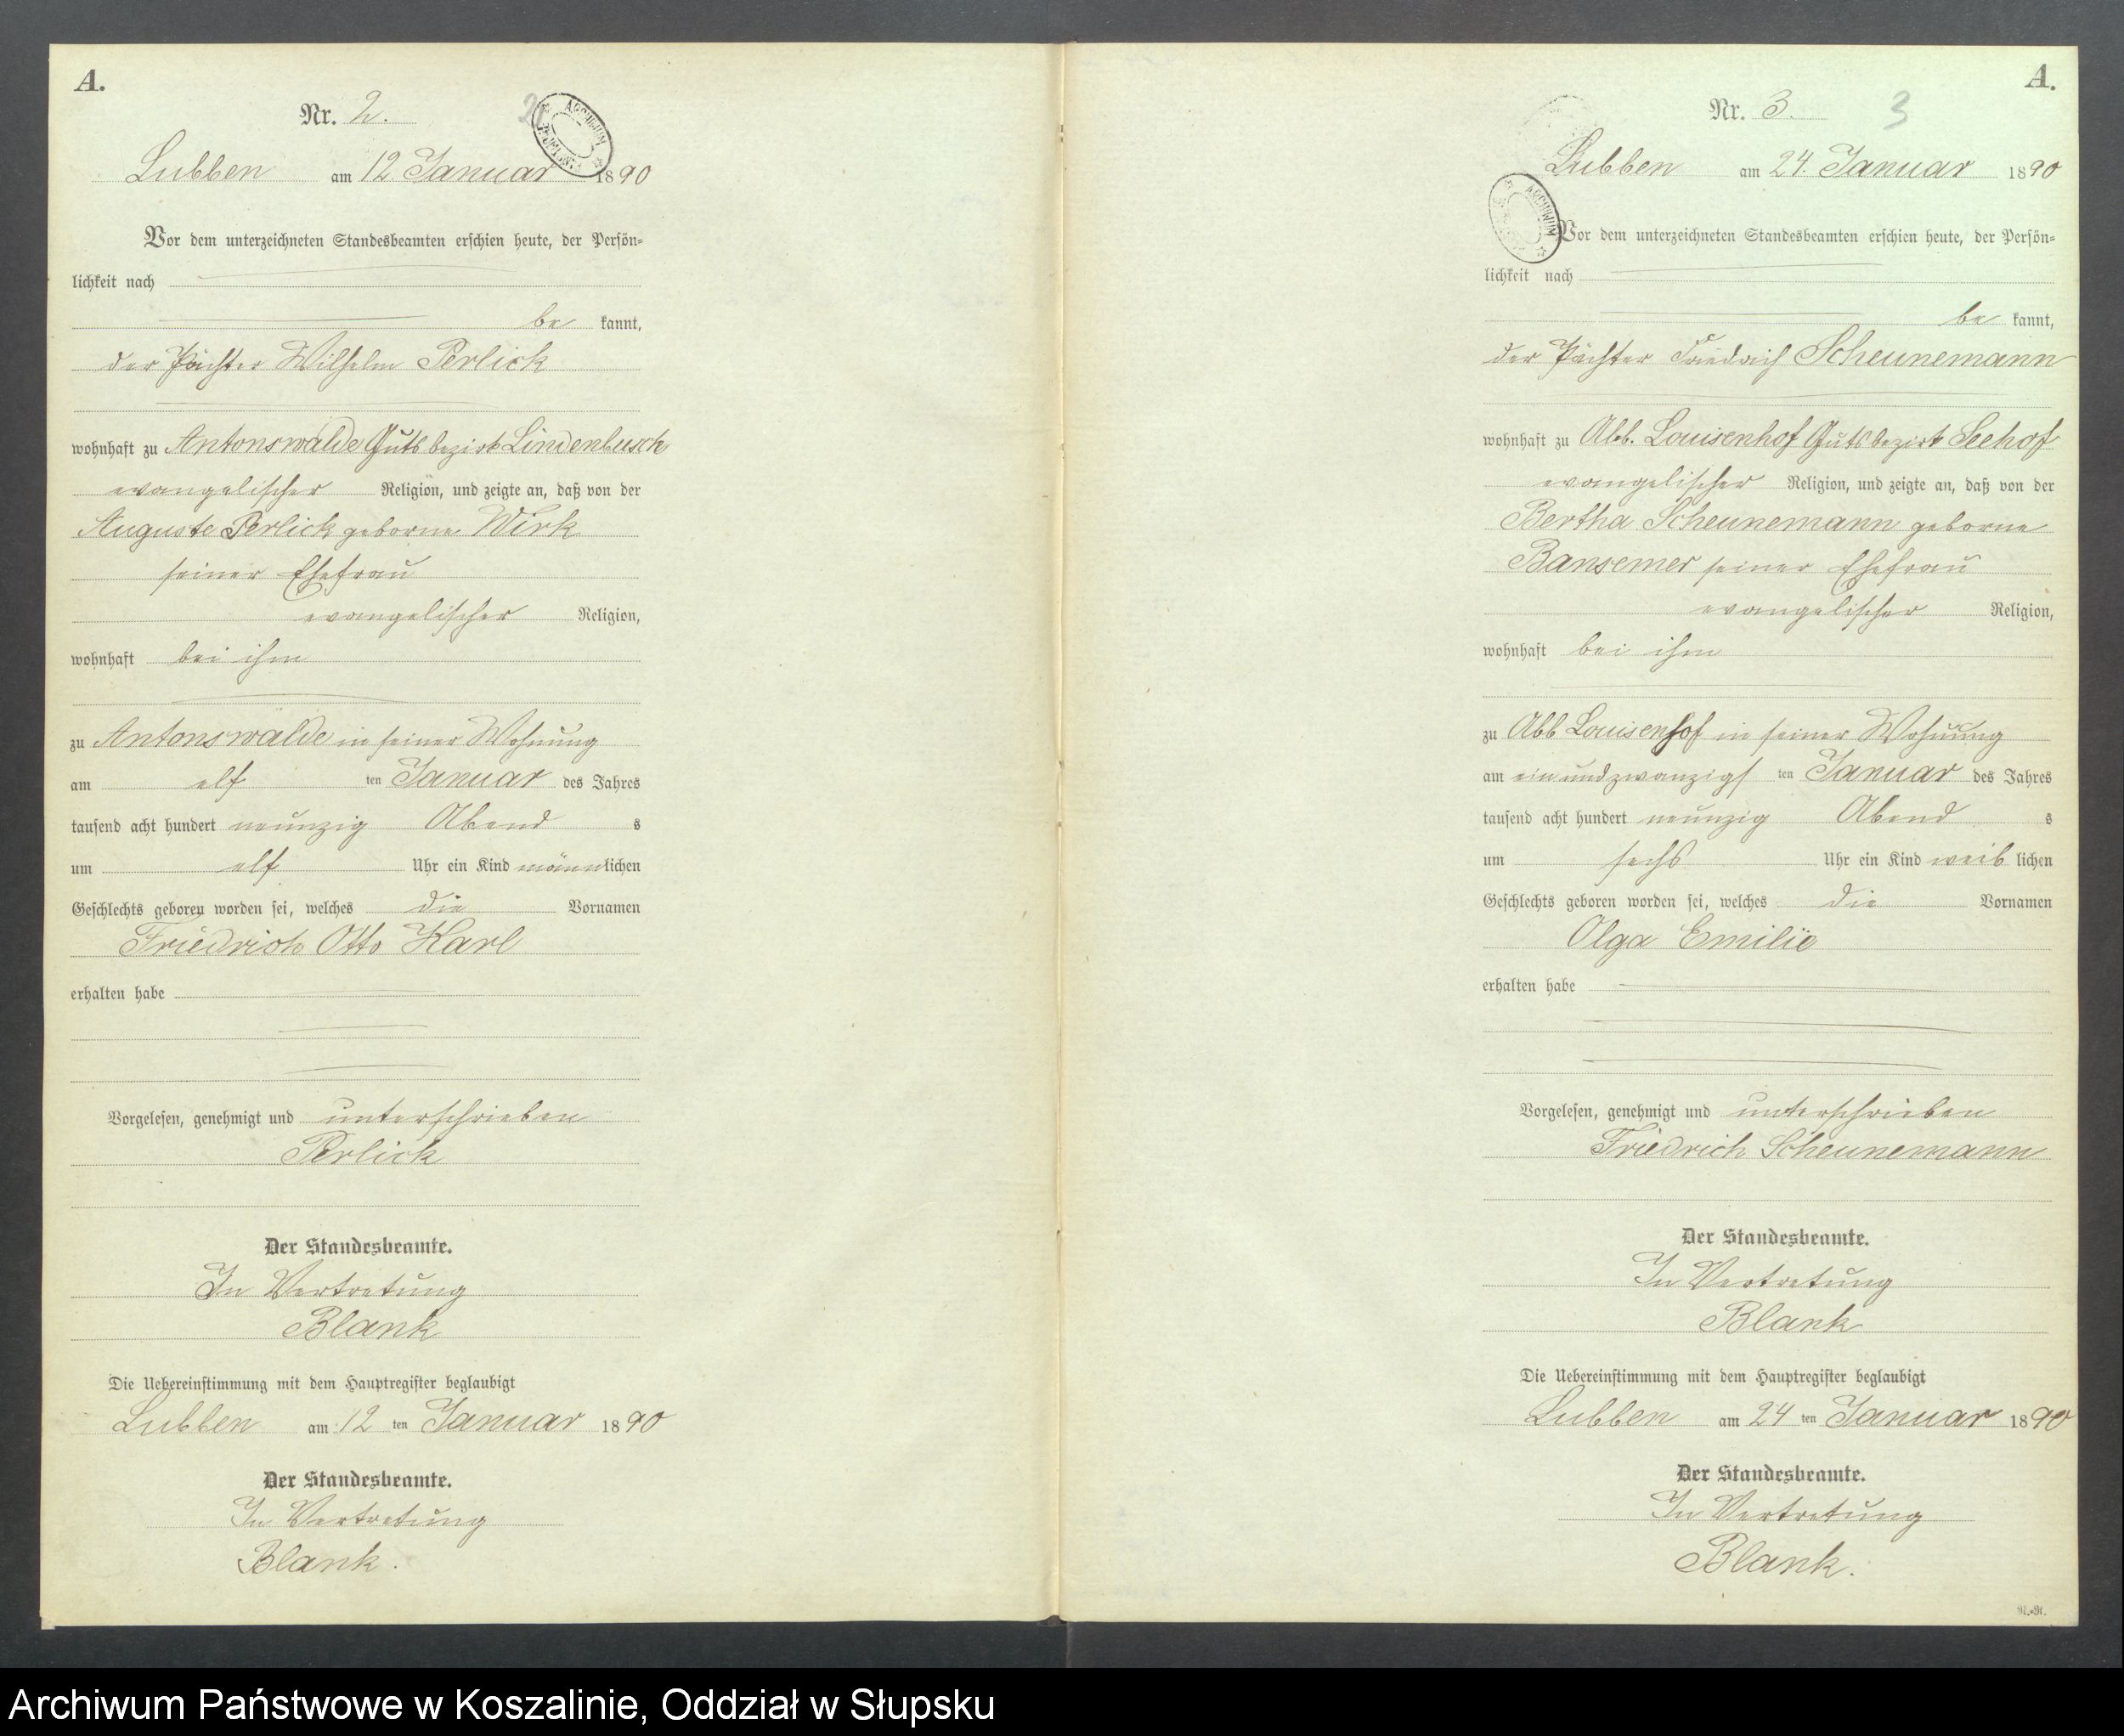 A.
Nr. 2.
2
ARCHIWUM
Lubben am 12 Januar 1890
Vor dem unterzeichneten Standesbeamten erschien heute, der Persön-
lichkeit nach
be kannt,
der Pächter Wilhelm Perlick
wohnhaft zu Antonswalde Gutsbezirk Lindenbusch
evangelischer Religion, und zeigte an, daß von der
Auguste Perlick geborne Wirk
seiner Ehefrau
evangelischer Religion,
wohnhaft bei ihm
zu Antonswalde in seiner Wohnung
am elf ten Januar des Jahres
tausend acht hundert neunzig Abend s
um elf Uhr ein Kind männlichen
Geschlechts geboren worden sei, welches die Vornamen
Friedrich Otto Karl
erhalten habe
Vorgelesen, genehmigt und unterschrieben
Perlick
Der Standesbeamte.
In Vertretung
Blank
Die Uebereinstimmung mit dem Hauptregister beglaubigt
Lubben am 12 ten Januar 1890
Der Standesbeamte.
In Vertretung
Blank.
A.
Nr. 3.
3
ARCHIWUM
Lubben am 24. Januar 1890
Vor dem unterzeichneten Standesbeamten erschien heute, der Persön-
lichkeit nach
be kannt,
der Pächter Friedrich Scheunemann
wohnhaft zu Abb. Louisenhof Gutsbezirk Seehof
evangelischer Religion, und zeigte an, daß von der
Bertha Scheunemann geborne
Bansemer seiner Ehefrau
evangelischer Religion,
wohnhaft bei ihm
zu Abb Louisenhof in seiner Wohnung
am einundzwanzigs ten Januar des Jahres
tausend acht hundert neunzig Abend s
um sechs Uhr ein Kind weib lichen
Geschlechts geboren worden sei, welches die Vornamen
Olga Emilie
erhalten habe
Vorgelesen, genehmigt und unterschrieben
Friedrich Scheunemann
Der Standesbeamte.
In Vertretung
Blank
Die Uebereinstimmung mit dem Hauptregister beglaubigt
Lubben am 24 ten Januar 1890
Der Standesbeamte.
In Vertretung
Blank.
Archiwum Państwowe w Koszalinie, Oddział w Słupsku